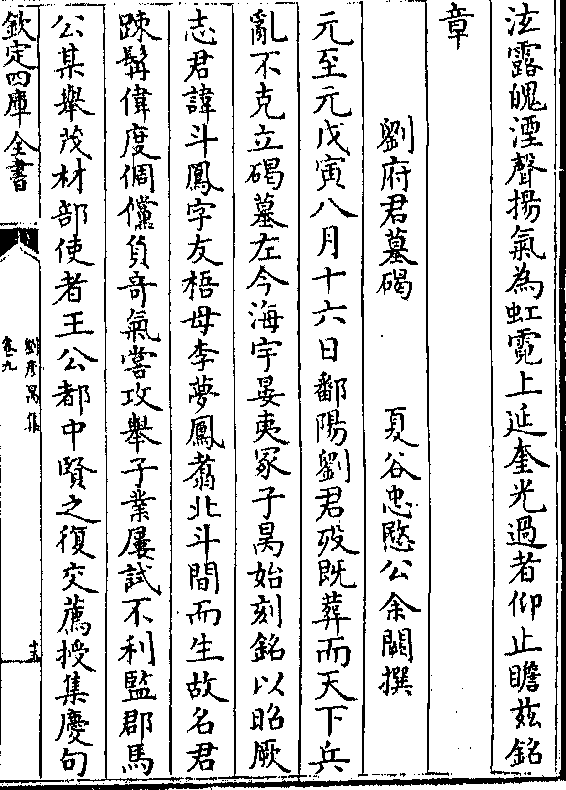 泫露魄湮聲揚氣為虹霓上延奎光過者仰止瞻兹銘
章
劉府君墓碣　夏谷忠愍公余闕撰
元至元戊寅八月十六日鄱陽劉君歿既葬而天下兵
亂不克立碣墓左今海宇晏夷冢子昺始刻銘以昭厥
志君諱斗鳳字友梧母李夢鳳翥北斗間而生故名君
踈髯偉度倜儻負奇氣嘗攻舉子業屢試不利監郡馬
公某舉茂材部使者王公都中賢之復交薦授集慶句
欽定四庫全書
劉彥昺集
卷九
十五